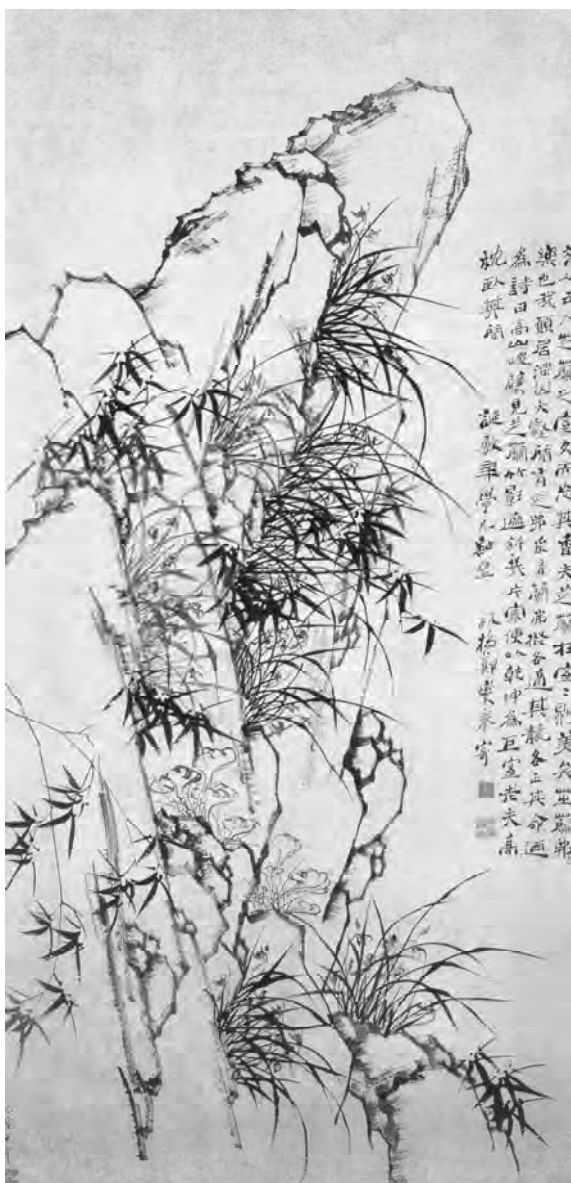 人云入芝蘭之室久而忘其香夫芝蘭在室二則美矣芝蘭弗
樂也我願居深山大壑間有芝弗采有蘭弗掇各適其天各正其命迺
為詩曰高山峻壁見芝蘭竹影遮斜幾片寒便以乾坤為巨室老夫高
枕臥其間 年學老 板橋鄭燮